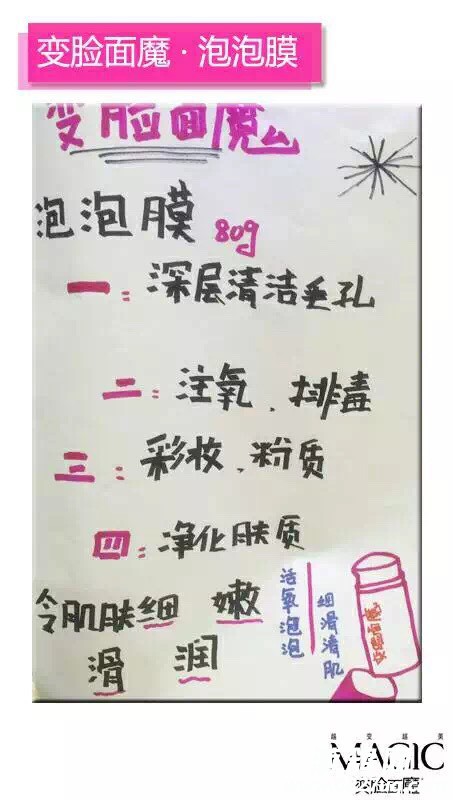 变脸面魔·泡泡膜
变脸面魔
泡泡膜 80g
一:深层清洁垂孔
二:注氧、排毒
三:彩妆、粉质
四:净化肤质
令肌肤细 嫩
滑 润
活氧泡泡
细滑清肌
变脸面魔
越变越美
MAGIC
变脸面魔